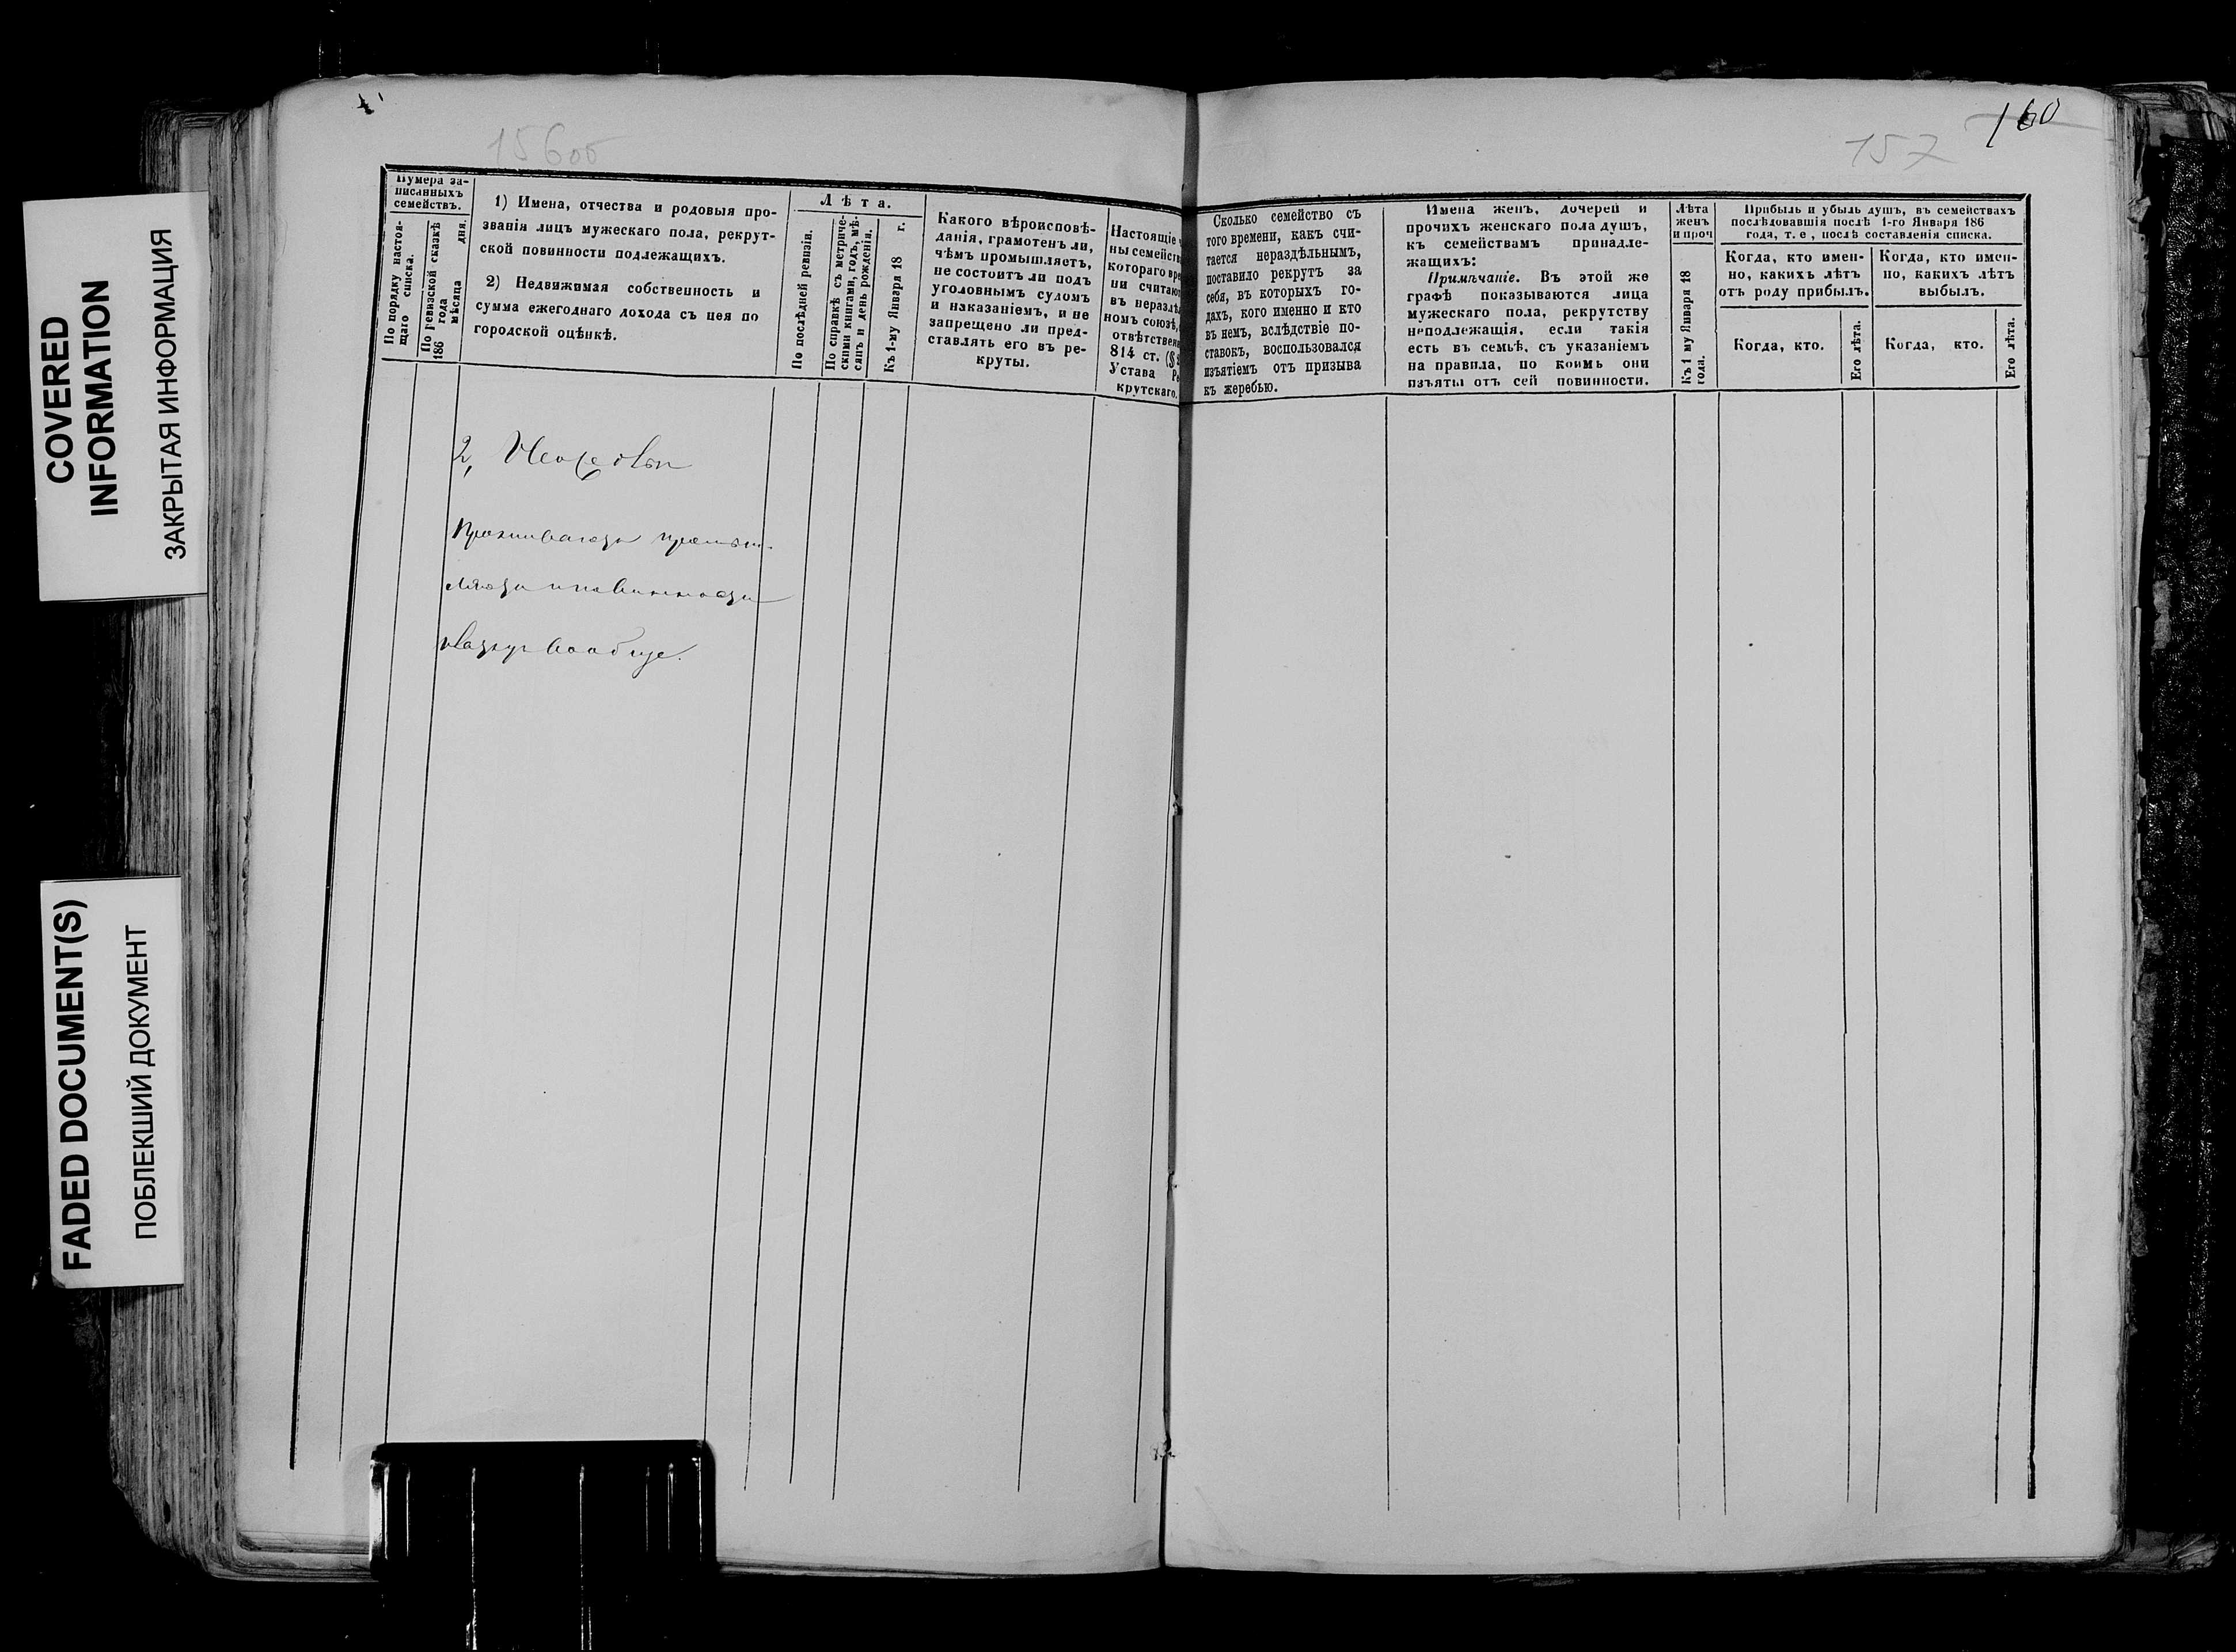 COVERED
INFORMATION
ЗАКРЫТАЯ ИНФОРМАЦИЯ
FADED DOCUMENT(S)
ПОБЛЕКШИЙ ДОКУМЕНТ
156об
Нумера за-
писанныхъ
семействъ.
По порядку настоя-
щаго списка.
По ревизской сказкѣ
186 года
мѣсяца дня.
1) Имена, отчества и родовыя про-
званія лицъ мужескаго пола, рекрут-
ской повинности подлежащихъ.
2) Недвижимая собственность и
сумма ежегоднаго дохода съ нея по
городской оцѣнкѣ.
Лѣта.
По послѣдней ревизіи.
По справкѣ съ метриче-
скими книгами, годъ, мѣ-
сяцъ и день рожденія.
Къ 1-му Января 18 г.
Какого вѣроисповѣ-
данія, грамотенъ ли,
чѣмъ промышляетъ,
не состоитъ ли подъ
уголовнымъ судомъ
и наказаніемъ, и не
запрещено ли пред-
ставлять его въ ре-
круты.
Настоящіе
ны семейств
котораго вре
ни считаю
въ неразлѣ
номъ союзѣ,
отвѣтствен
814 ст. (§
Устава Ре
крутскаго.
2,
Проживаютъ промыш-
ляютъ и повинности
вообще.
160
157
Сколько семейство съ
того времени, какъ счи-
тается нераздѣльнымъ,
поставило рекрутъ за
себя, въ которыхъ го-
дахъ, кого именно и кто
въ немъ, вслѣдствіе по-
ставокъ, воспользовался
изъятіемъ отъ призыва
къ жеребью.
Имена женъ, дочерей и
прочихъ женскаго пола душъ,
къ семействамъ принадле-
жащихъ:
Примѣчаніе. Въ этой же
графѣ показываются лица
мужескаго пола, рекрутству
неподлежащія, если такія
есть въ семьѣ, съ указаніемъ
на правила, по коимъ они
изъяты отъ сей повинности.
Лѣта
женъ
и проч
Къ 1 му Января 18
года.
Прибыль и убыль душъ, въ семействахъ
послѣдовавшія послѣ 1-го Января 186
года, т. е , послѣ составленія списка.
Когда, кто имен-
но, какихъ лѣтъ
отъ роду прибылъ.
Когда, кто.
Его лѣта.
Когда, кто имен-
но, какихъ лѣтъ
выбылъ.
Когда, кто.
Его лѣта.